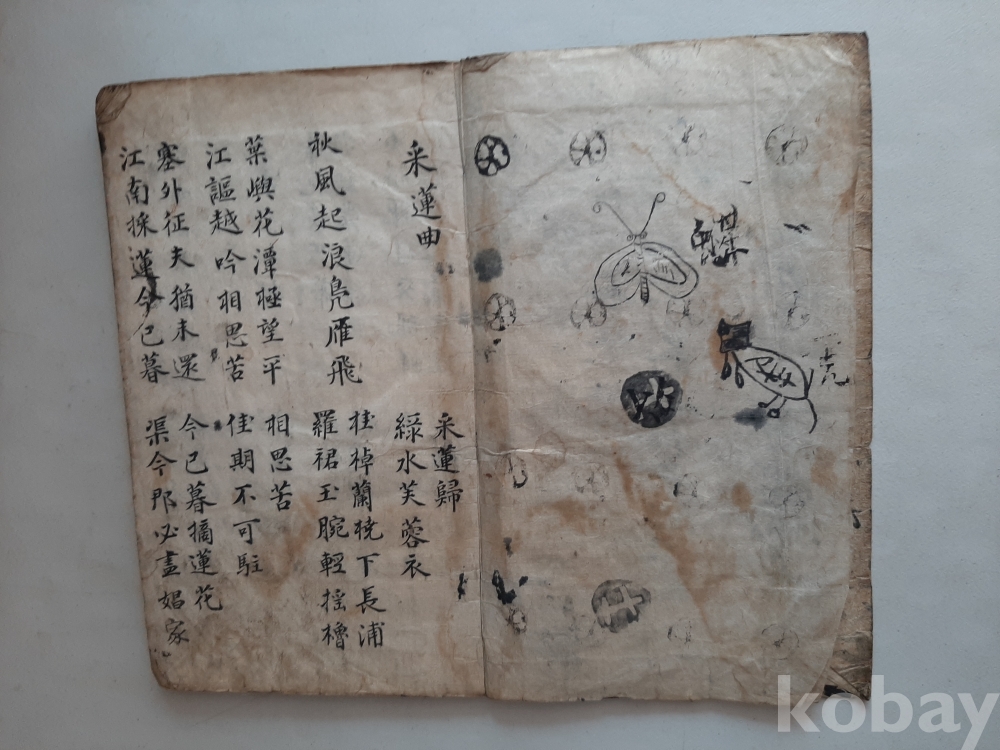 采蓮曲
采蓮歸
綠水芙蓉衣
秋風起浪鳧雁飛
桂棹蘭橈下長浦
羅裙玉腕輕搖櫓
葉嶼花潭極望平
江謳越吟相思苦
相思苦
佳期不可駐
塞外征夫猶未還
江南採蓮今已暮
今已暮摘蓮花
渠今那必盡娼家
kobay